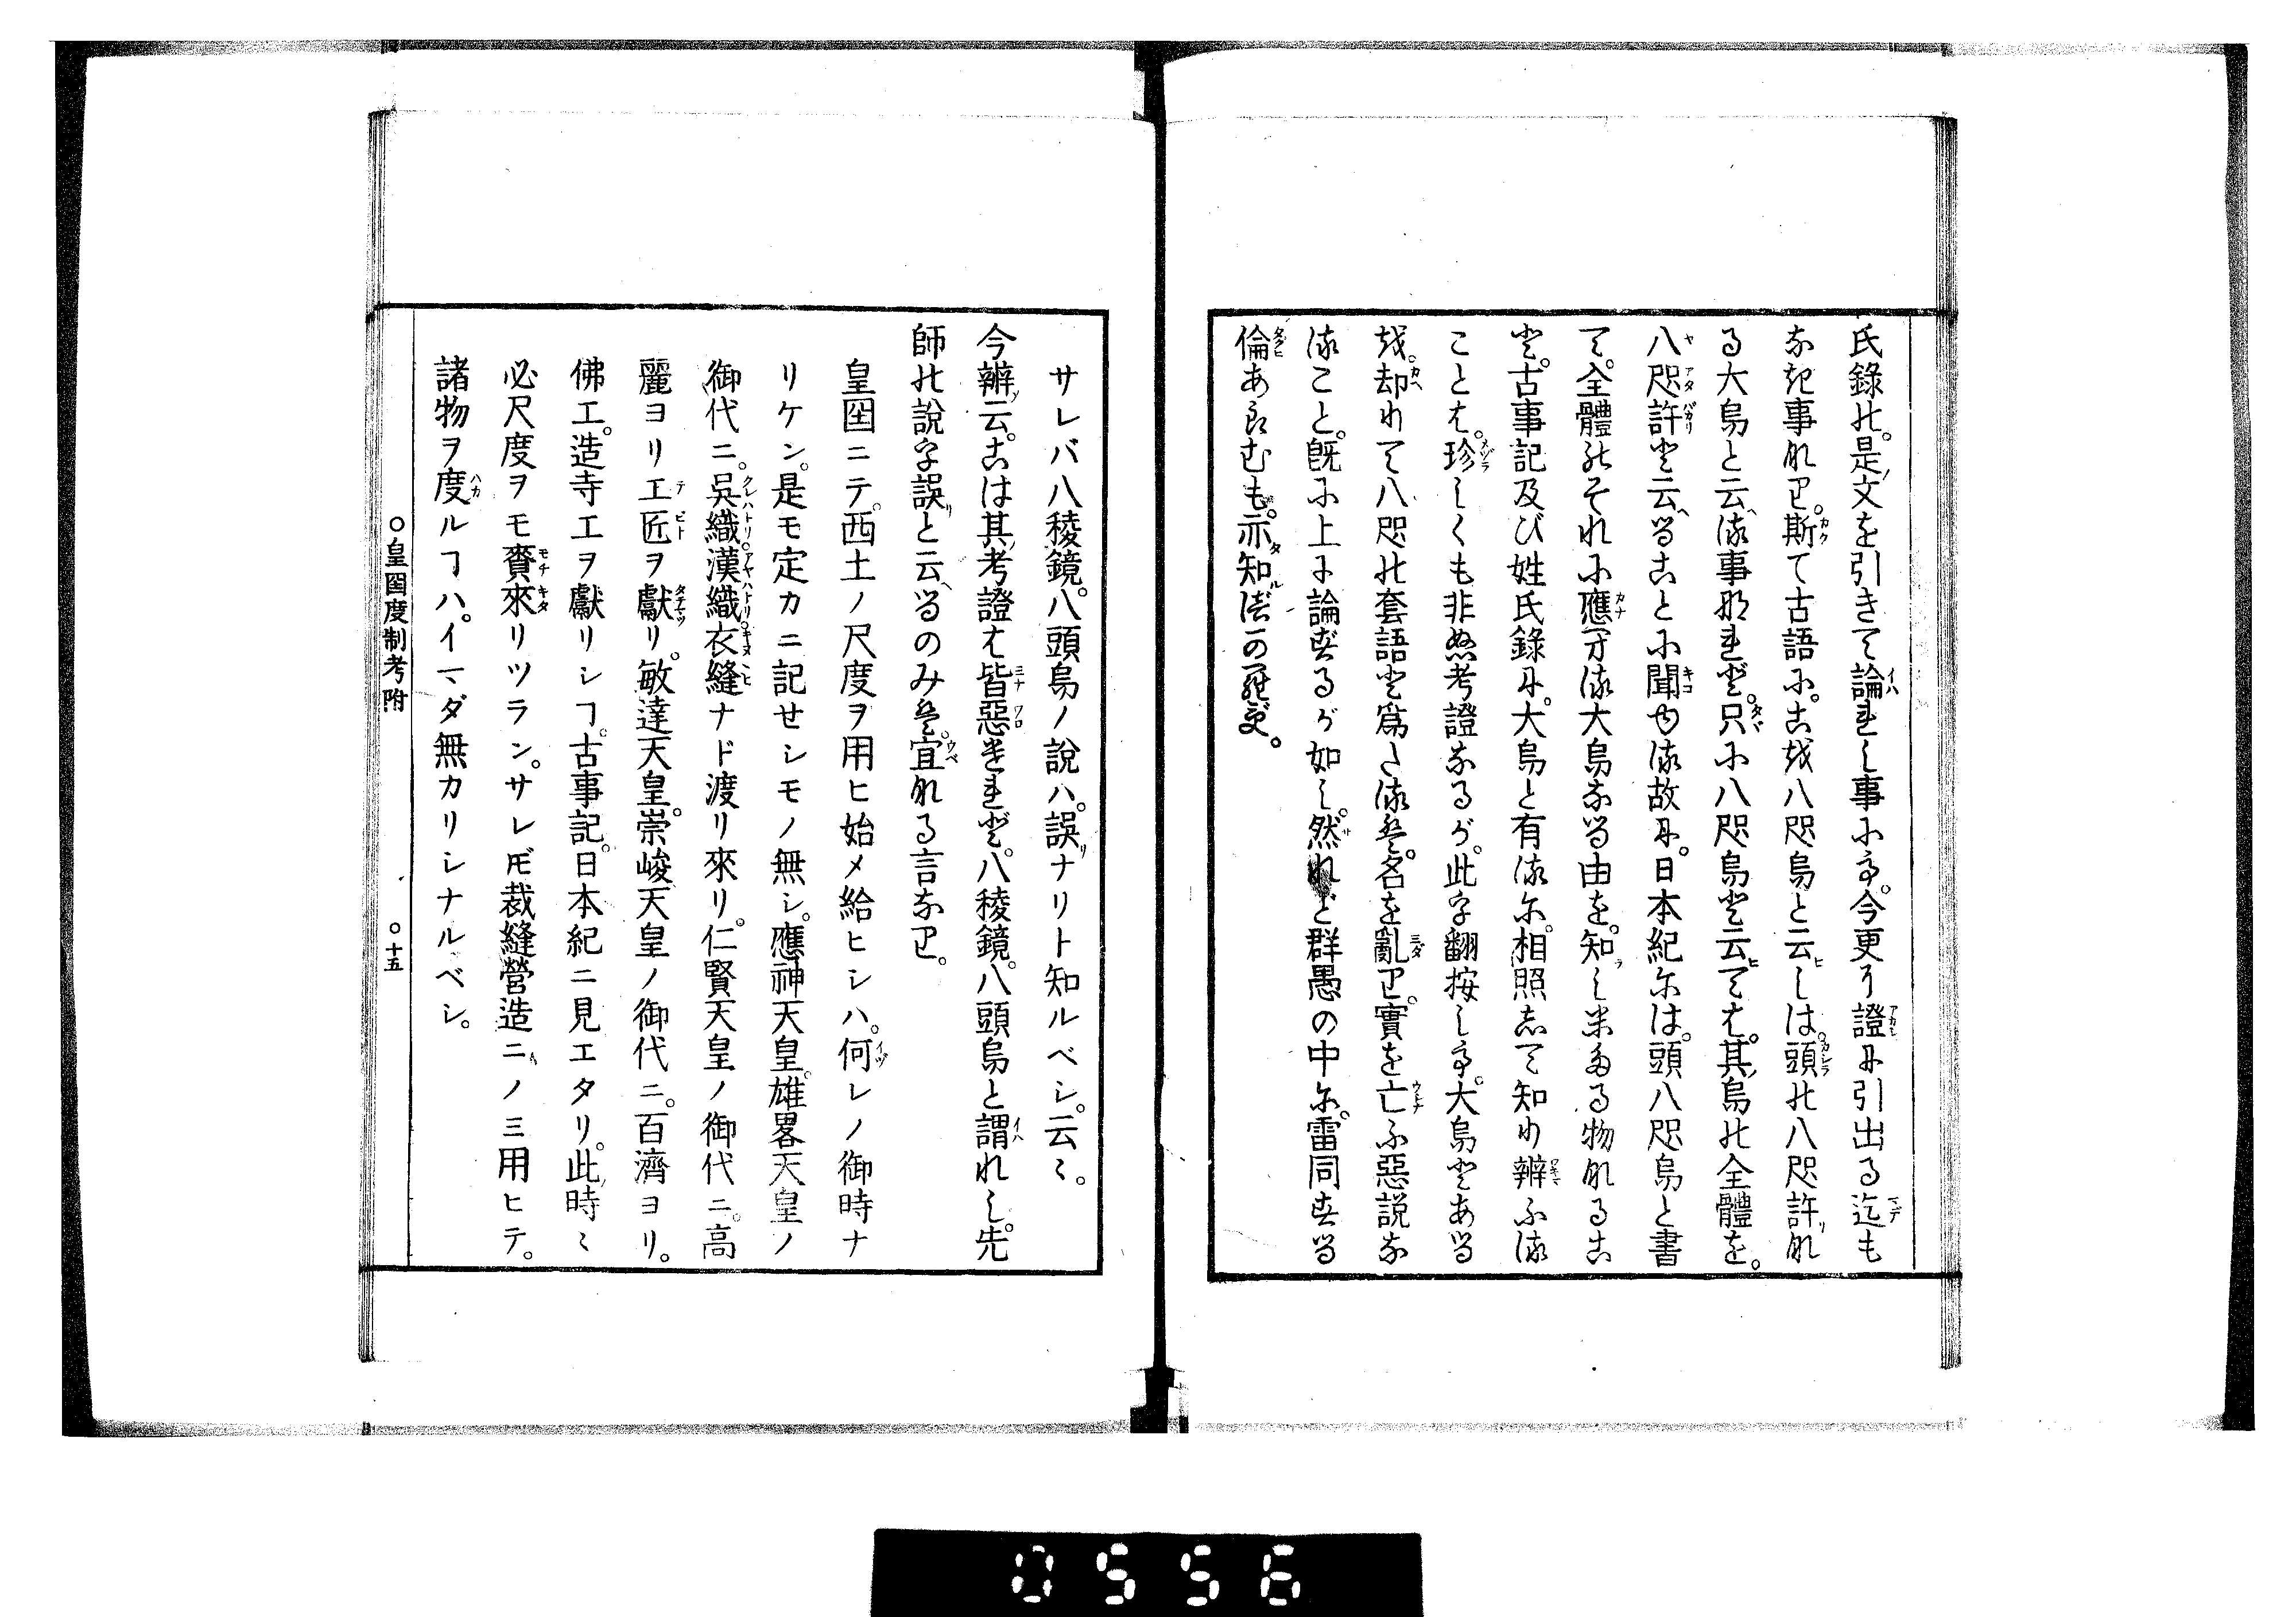 氏錄の。是文を引きて論れし事にて。今更に證に引出る迄も
なき事なり。斯て古語に。こを八咫烏と云しは。頭の八咫許な
る大烏と云る事なれど。只に八咫烏と云ては。其烏の全體を。
八咫許と云ることに聞ゆる故に。日本紀には。頭八咫烏と書
て。全體のそれに應はざる大烏なる由を。知しめたる物なるこ
と。古事記及び姓氏錄に。大烏と有るに。相照して知り辨ふる
ことぞ。珍しくも非ぬ考證なるが。此を翻按して。大烏とある
を。却りて八咫の套語と爲たるは。名を亂り。實を亡ふ惡說な
ること。既に上に論へるが如し。然れど群愚の中に。雷同する
倫あらむも。亦知べからず。
サレバ八稜鏡。八頭烏ノ說ハ。誤ナリト知ルベシ。云〻。
今辨云。こは其考證ぞ皆惡けれど。八稜鏡。八頭烏と謂れし。先
師の說を誤と云るのみは。宜なる言なり。
皇國ニテ。西土ノ尺度ヲ用ヒ始メ給ヒシハ。何レノ御時ナ
リケン。是モ定カニ記セシモノ無シ。應神天皇。雄畧天皇ノ
御代ニ。吳織。漢織。衣縫ナド渡リ來リ。仁賢天皇ノ御代ニ。高
麗ヨリ工匠ヲ獻リ。敏達天皇。崇峻天皇ノ御代ニ。百濟ヨリ。
佛工。造寺工ヲ獻リシヿ。古事記。日本紀ニ見エタリ。此時〻
必尺度ヲモ賷來リツラン。サレドモ裁縫營造ニノミ用ヒテ。
諸物ヲ度ルヿハ。イマダ無カリシナルベシ。
○皇國度制考附 ○十五
0556